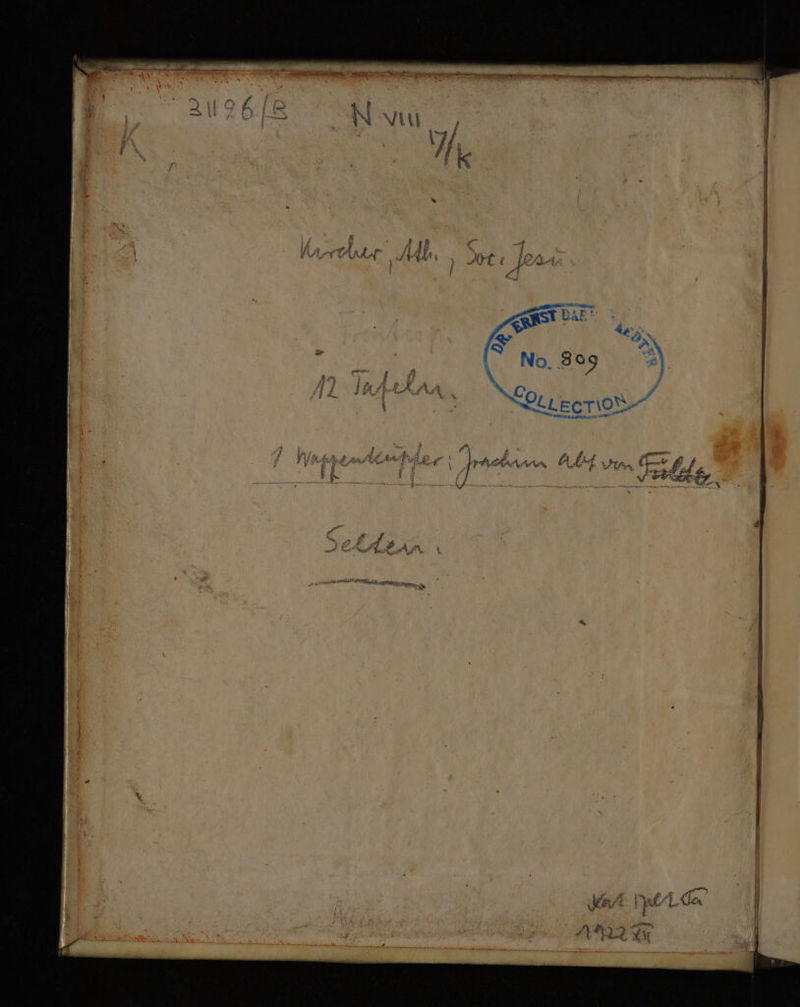 2496/B N VIII
K 7/k
Kircher, Ath., Soc. Jesu.
DR. ERNST DAE AEDTER
No. 809
COLLECTION
12 Tafeln.
1 Wappenkupfer: Joachim Abt von Fulda
Selten.
1922 XII